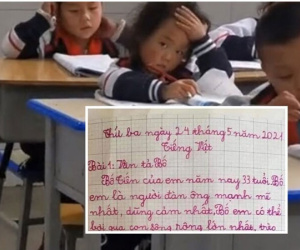 Thứ ba ngày 24 tháng 5 năm 2021
Tiếng Việt
Bài 1: Văn tả Bố
Bố Tiến của em năm nay 33 tuổi. Bố
em là người đàn ông mạnh mẽ
nhất, dũng cảm nhất, Bố em có thể
bơi qua con sông rộng lớn nhất, trèo